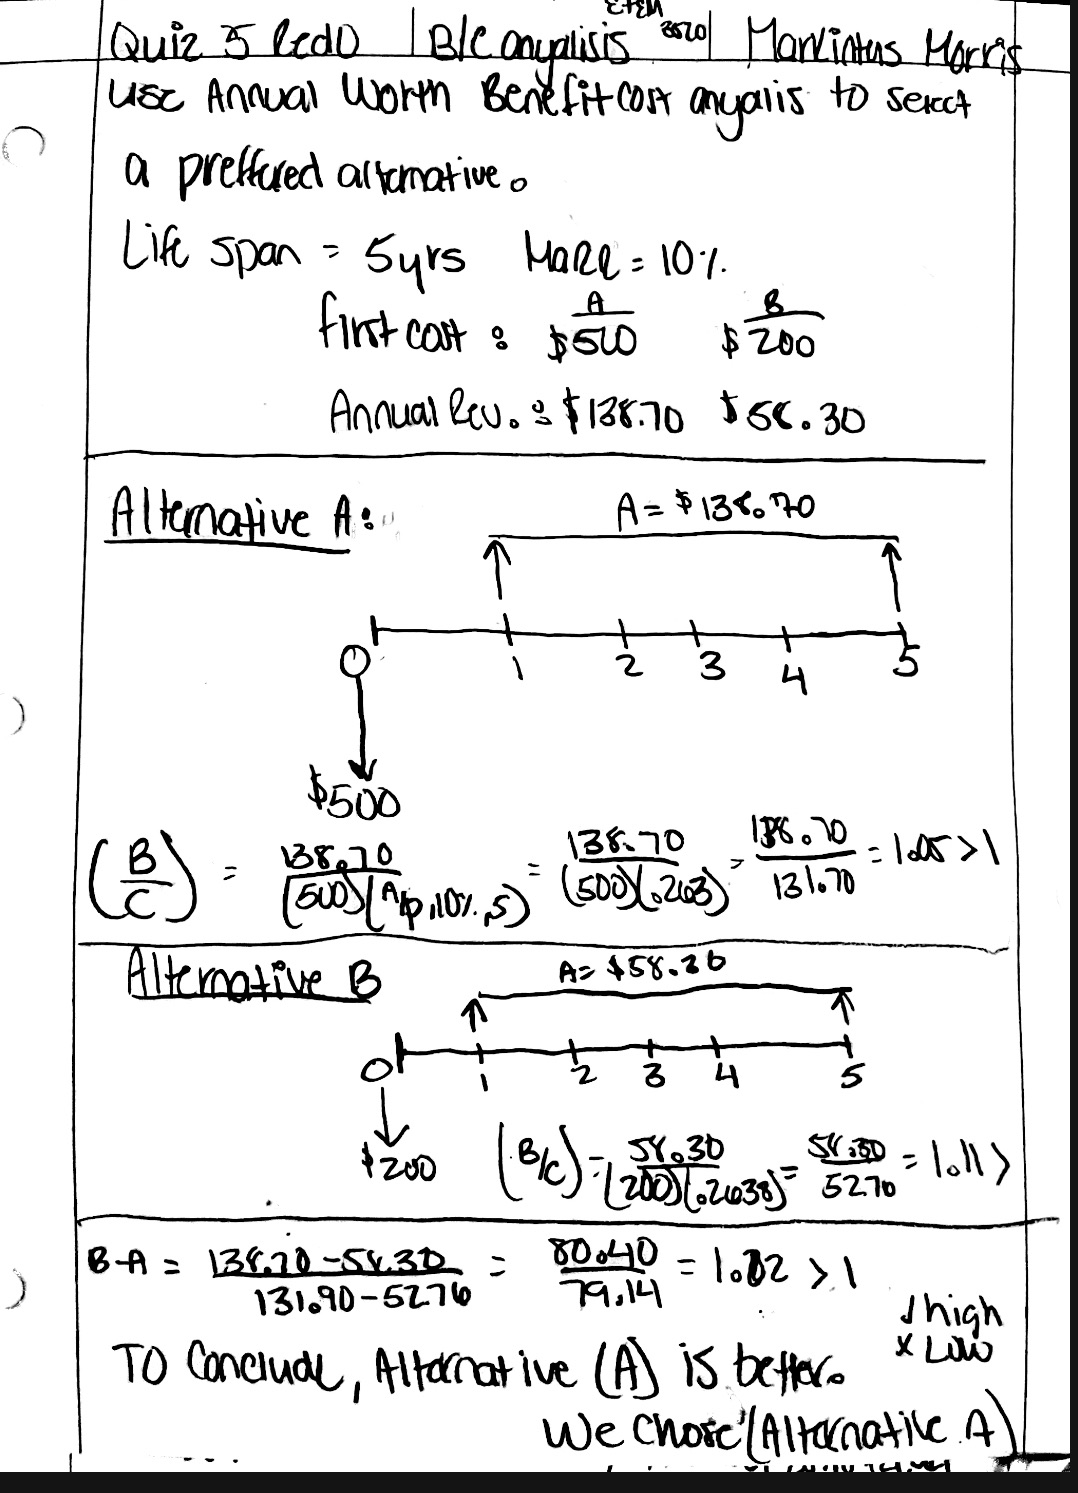 Quiz 5 Redo | B/C anyalisis ETEM 3520 | Markintus Morris
use Annual Worth Benefit cost anyalis to select
a preffured alternative.
Life span = 5yrs MARR = 10%
A B
first cost : $500 $200
Annual Rev. : $138.70 $58.30
Alternative A:
A = $138.70
0 1 2 3 4 5
$500
(B/C) = 138.70/(500)(A/p,10%,5) = 138.70/(500)(.263) = 138.70/131.70 = 1.05 > 1
Alternative B
A= $58.30
0 1 2 3 4 5
$200 (B/C) = 58.30/(200)(.2638) = 58.30/5270 = 1.11 >
B-A = 138.70 - 58.30/131.90 - 5276 = 80.40/79.14 = 1.02 > 1
√ high
x Low
TO Conclude, Alternative (A) is better.
We Chose (Alternative A)